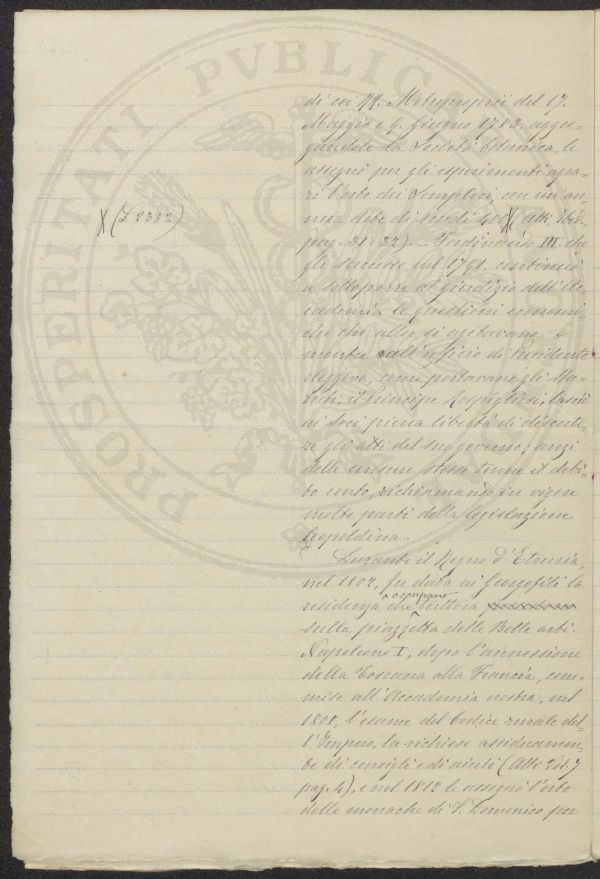 di cui M. Motuproprii del 17.
Maggio e 9. Giugno 1783, aggre-
gandole la Società botanica, le
assegnò per gli esperimenti agra-
ri l'orto dei Semplici, con un'an-
nua dote di scudi 400 X (Atti ibid.
X (L 2352)
pag. 31-32). – Ferdinando III che
gli successe nel 1791, continuò
a sottoporre al giudizio dell'Ac-
cademia le questioni economi-
che che allor si agitavano. E
mentre all'uffizio di Presidente
eleggeva, come portavano gli Sta-
tuti, il Principe Rospigliosi, lasciò
ai Soci piena libertà di discute-
re gli atti del suo governo; anzi
delle censure stesse tenne il debi-
to conto, richiamando in vigore
molte parti della legislazione
leopoldina.
Durante il Regno d'Etruria,
nel 1807, fu data ai Georgofili la
residenza che tuttora occupano
sulla piazzetta delle Belle arti.
Napoleone I, dopo l'annessione
della Toscana alla Francia, com-
mise all'Accademia nostra, nel
1808, l'esame del Codice rurale del-
l'Impero, la richiese assiduamen-
te di consigli e di aiuti (Atti Vol. 7
pag. 4), e nel 1812 le assegnò l'orto
delle monache di S. Domenico per
PROSPERITATI PVBLICAE